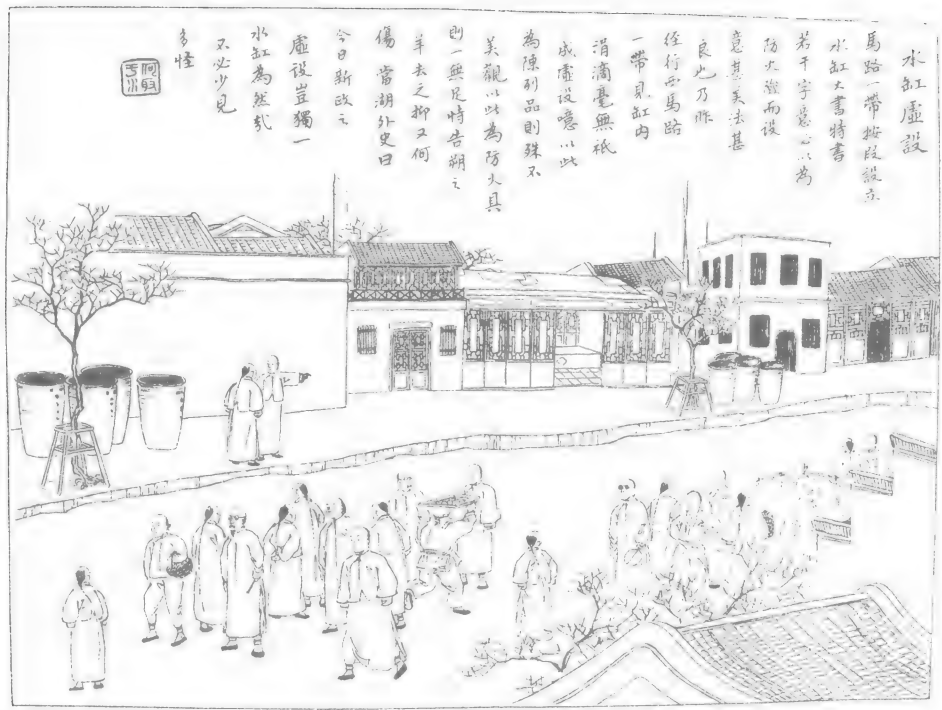 水缸虛設
馬路一帶按段設立
水缸大書特書
若干字意必以為
防火災而設
意甚美法甚
良也乃昨
徑行西馬路
一帶見缸內
涓滴毫無祇
成虛設噫以此
為陳列品則殊不
美觀以此為防火具
則一無足恃告朔之
羊去之抑又何
傷 當湖外史曰
今日新政之
虛設豈獨一
水缸為然哉
不必少見
多怪